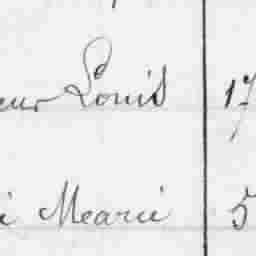 eur Louis 17
i Mearie 5